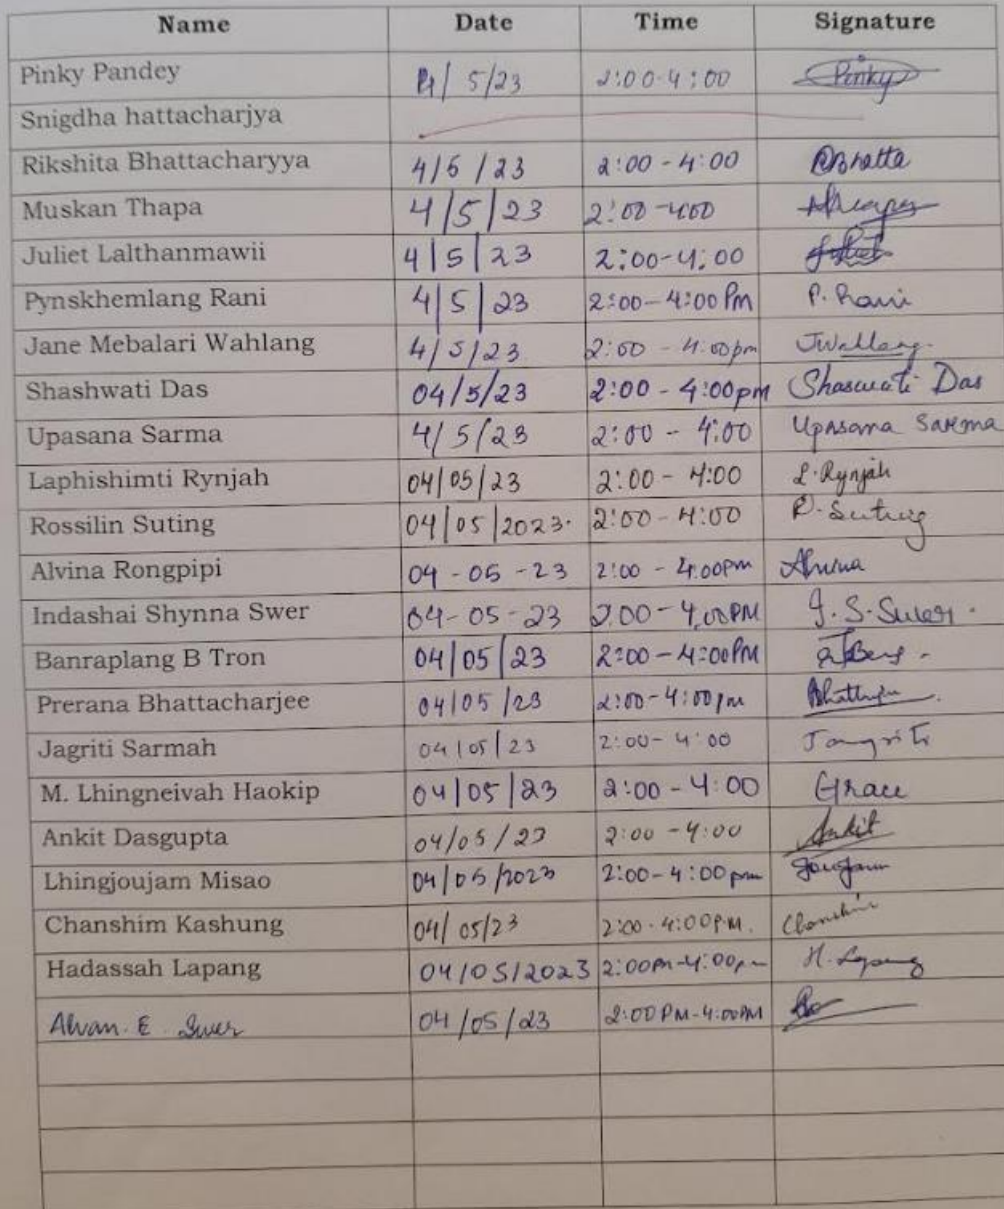 Name Date Time Signature
Pinky Pandey 4/ 5/23 2:00-4:00 Pinky
Snigdha hattacharjya
Rikshita Bhattacharyya 4/5/23 2:00 - 4:00 RBhatta
Muskan Thapa 4/5/23 2:00-400
Juliet Lalthanmawii 4/5/23 2:00-4:00 Juliet
Pynskhemlang Rani 4/5/23 2:00-4:00 Pm P. Rani
Jane Mebalari Wahlang 4/5/23 2:00 - 4:00pm JWahlang.
Shashwati Das 04/5/23 2:00 - 4:00pm Shaswati Das
Upasana Sarma 4/5/23 2:00 - 4:00 Upasana Sarma
Laphishimti Rynjah 04/05/23 2:00 - 4:00 L.Rynjah
Rossilin Suting 04/05/2023. 2:00-4:00 R.Suting
Alvina Rongpipi 04-05-23 2:00 - 4:00pm Alvina
Indashai Shynna Swer 04-05-23 2.00-4.00PM I.S.Swer.
Banraplang B Tron 04/05/23 2:00-4:00PM
Prerana Bhattacharjee 04/05/23 2:00-4:00pm
Jagriti Sarmah 04/05/23 2:00-4:00 Jangriti
M. Lhingneivah Haokip 04/05/23 2:00-4:00 Grace
Ankit Dasgupta 04/05/23 2:00-4:00 Ankit
Lhingjoujam Misao 04/05/2023 2:00-4:00 pm
Chanshim Kashung 04/05/23 2:00-4:00P.M. Chanshim
Hadassah Lapang 04/05/2023 2:00PM-4:00pm H.Lapang
Alvan. E Swer 04/05/23 2:00PM-4:00PM